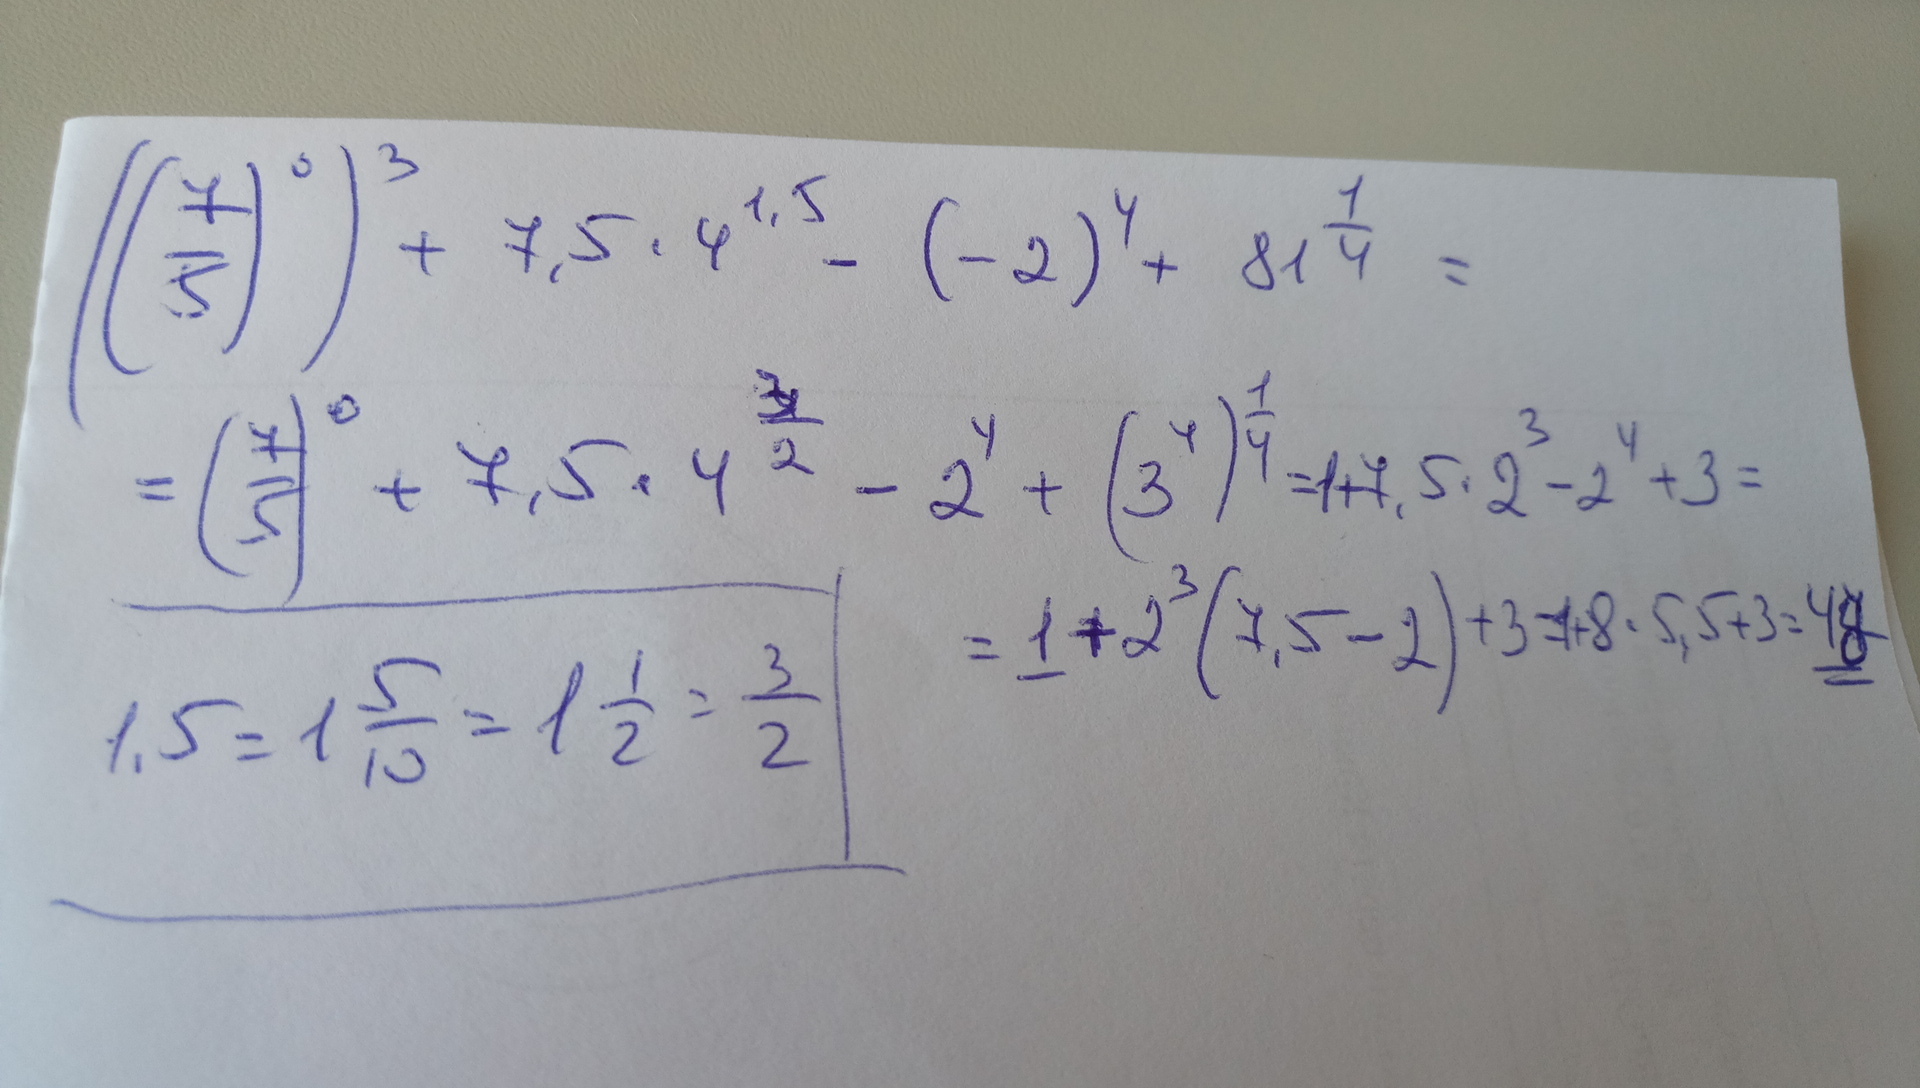 ((7/5)^0)^3 + 7,5 · 4^1,5 - (-2)^4 + 81^1/4 =
= (7/5)^0 + 7,5 · 4^3/2 - 2^4 + (3^4)^1/4 = 1+7,5 · 2^3 - 2^4 + 3 =
= 1 + 2^3 (7,5 - 2) + 3 = 1+8 · 5,5+3 = 48
1,5 = 1 5/10 = 1 1/2 = 3/2